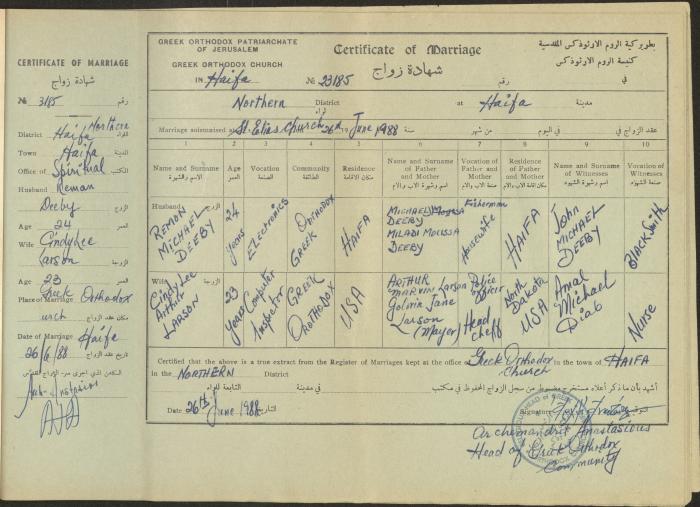 CERTIFICATE OF MARRIAGE
شهادة زواج
№ 3185 رقم
District Haifa Northern
Town Haifa المدينة
Office of Spiritual المكتب
Husband Reman
Deeby الزوج
Age 24 العمر
Wife Cindy Lee
Larson الزوجة
Age 23 العمر
Greek Orthodox
Place of Marriage
urch مكان عقد الزواج
Date of Marriage Haifa
26/6/88 تاريخ عقد الزواج
GREEK ORTHODOX PATRIARCHATE
OF JERUSALEM
GREEK ORTHODOX CHURCH
IN Haifa
Certificate of Marriage
شهادة زواج
№ 23185 رقم
بطريركية الروم الارثوذكس المقدسية
كنيسة الروم الارثوذكس
في
Northern District at Haifa مدينة
لواء
Marriage solemnised at St. Elias Church 26th June 1988 سنة من شهر في اليوم عقد الزواج في
1 2 3 4 5 6 7 8 9 10
Name and Surname Age Vocation Community Residence Name and Surname of Father and Mother Vocation of Father and Mother Residence of Father and Mother Name and Surname of Witnesses Vocation of Witnesses
اسم وشهرة العمر الصنعة الطائفة مكان الاقامة
Husband الزوج
REMON MICHAEL DEEBY
24 years
ELECTRONICS
GREEK ORTHODOX
HAIFA
MICHAEL MOUSSA DEEBY
MILADI MOUSSA DEEBY
Fisherman
Housewife
HAIFA
John MICHAEL DEEBY
BLACKSmith
Wife الزوجة
Cindy Lee Arthur LARSON
23 years
Computer Inspector
GREEK OROTHODOX
USA
ARTHUR MARVIN Larson
Jane Larson (Mayer)
Police Officer
Head cheff
North DAKOTA USA
Amal Michael Diab
Nurse
Certified that the above is a true extract from the Register of Marriages kept at the office of Greek Orthodox Church in the town of HAIFA
in the NORTHERN District
أشهد بأن ما ذكر أعلاه مستخرج مضبوط من سجل الزواج المحفوظ في مكتب في مدينة التابعة للواء
Date 26th June 1988 التاريخ
Signature
Archemandrit Anastasious
Head of Greek Orthodox
Community